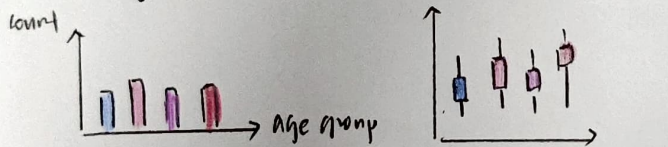 count
age group